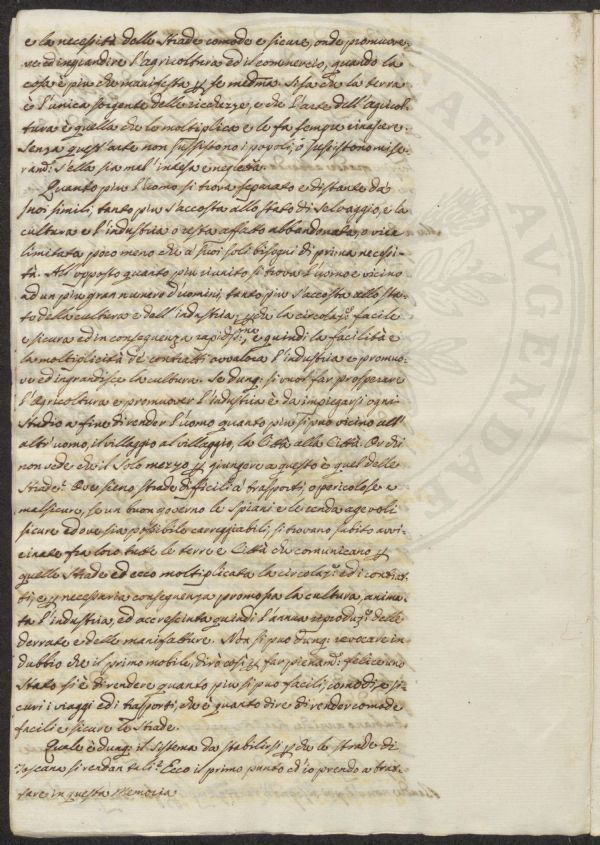 e la necessità delle Strade comode e sicure, onde promuove-
re ed ingrandire l'agricoltura ed il commercio, quando la
cosa è più che manifesta per se medma. Si sa che la terra
è l'unica sorgente delle ricchezze, e che l'arte dell'agricol-
tura è quella che lo moltiplica e le fa sempre rinascere.
Senza quest'arte non sussistono i popoli, o sussistono mise-
rand: s'ella sia mal'intesa e negletta.
Quanto più l'uomo si trova separato e distante da
suoi simili, tanto più s'accosta allo stato di selvaggio, e la
cultura e l'industria o resta affatto abbandonata, o vien
limitata poco meno che a' suoi soli bisogni di prima necessi-
tà. All'opposto quanto più riunito si trova l'uomo e vicino
ad un più gran numero d'uomini, tanto più s'accosta allo sta-
to della cultura e dell'industria; per che la circolaz:e facile
e sicura ed in conseguenza rapidiss:ma, e quindi la facilità e
la moltiplicità de' contratti avvalora l'industria e promuo-
ve ed ingrandisce la cultura. Se dunq: si vuol far prosperare
l'Agricoltura e promuover l'Industria è da impiegarsi ogni
studio a fine di render l'uomo quanto più si può vicino all'
altr'uomo, il villaggio al villaggio, la Città alla Città. Or chi
non vede che il solo mezzo per giungere a questo è quel delle
Strade? Ove sieno strade difficili a' trasporti, o pericolose e
malsicure, se un buon governo le spiani e le renda agevoli
sicure ed ove sia possibile carreggiabili, si trovano subito avvi-
cinate fra loro tutte le terre e Città che comunicano per
quelle Strade ed ecco moltiplicata la circolaz:e ed i contrat-
ti, e per necessaria conseguenza promossa la cultura, anima-
ta l'industria, ed accresciuta quindi l'annua reproduz:e delle
derrate e delle manifatture. Non si può dunq: revocare in
dubbio che il primo mobile, dirò così, per far pienam: felice uno
Stato si è di rendere quanto più si può facili, comodi, e si-
curi i viaggi ed i trasporti, che è quanto dire di render comode
facili e sicure le Strade.
Quale è dunq: il sistema da stabilirsi per che le strade di
Toscana si rendan tali? Ecco il primo punto ch'io prendo a trat-
tare in questa Memoria
AVGENDAE